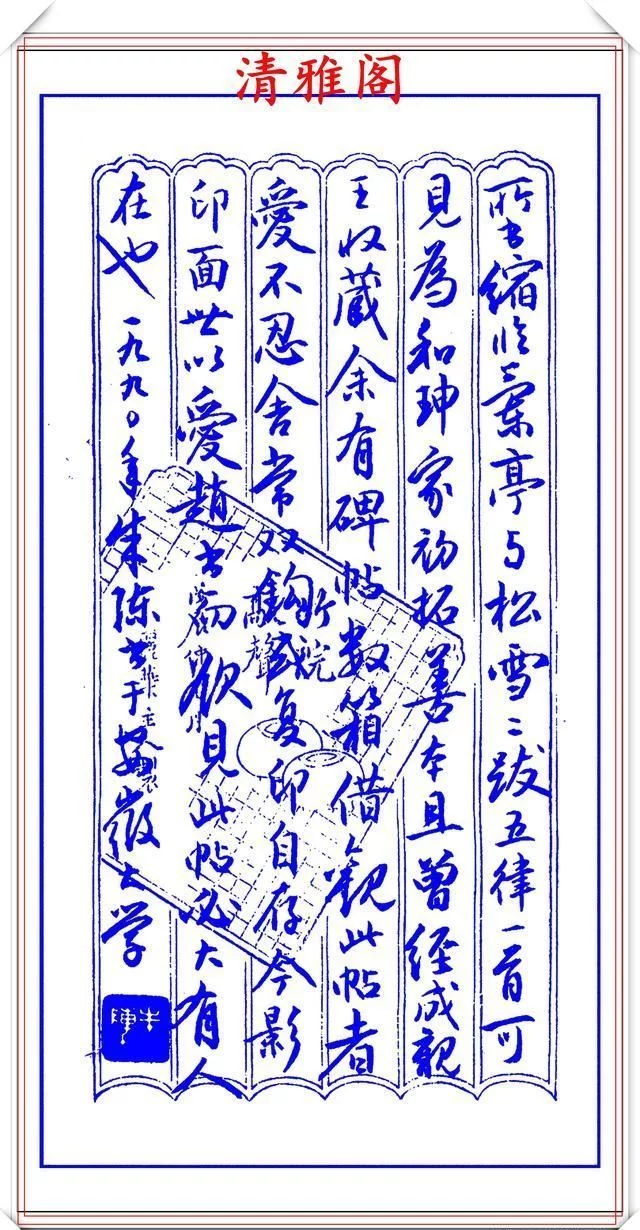 清雅阁
所书缩临蘭亭与松雪二跋五律一首可
見為和珅家初拓善本且曾經成親
王收藏余有碑帖數箱借人觀此帖者
愛不忍舍常双鈎或复印自存今影
印面世以愛趙书欲見此帖必大有人
在也 一九九〇年朱陈书于安徽大学